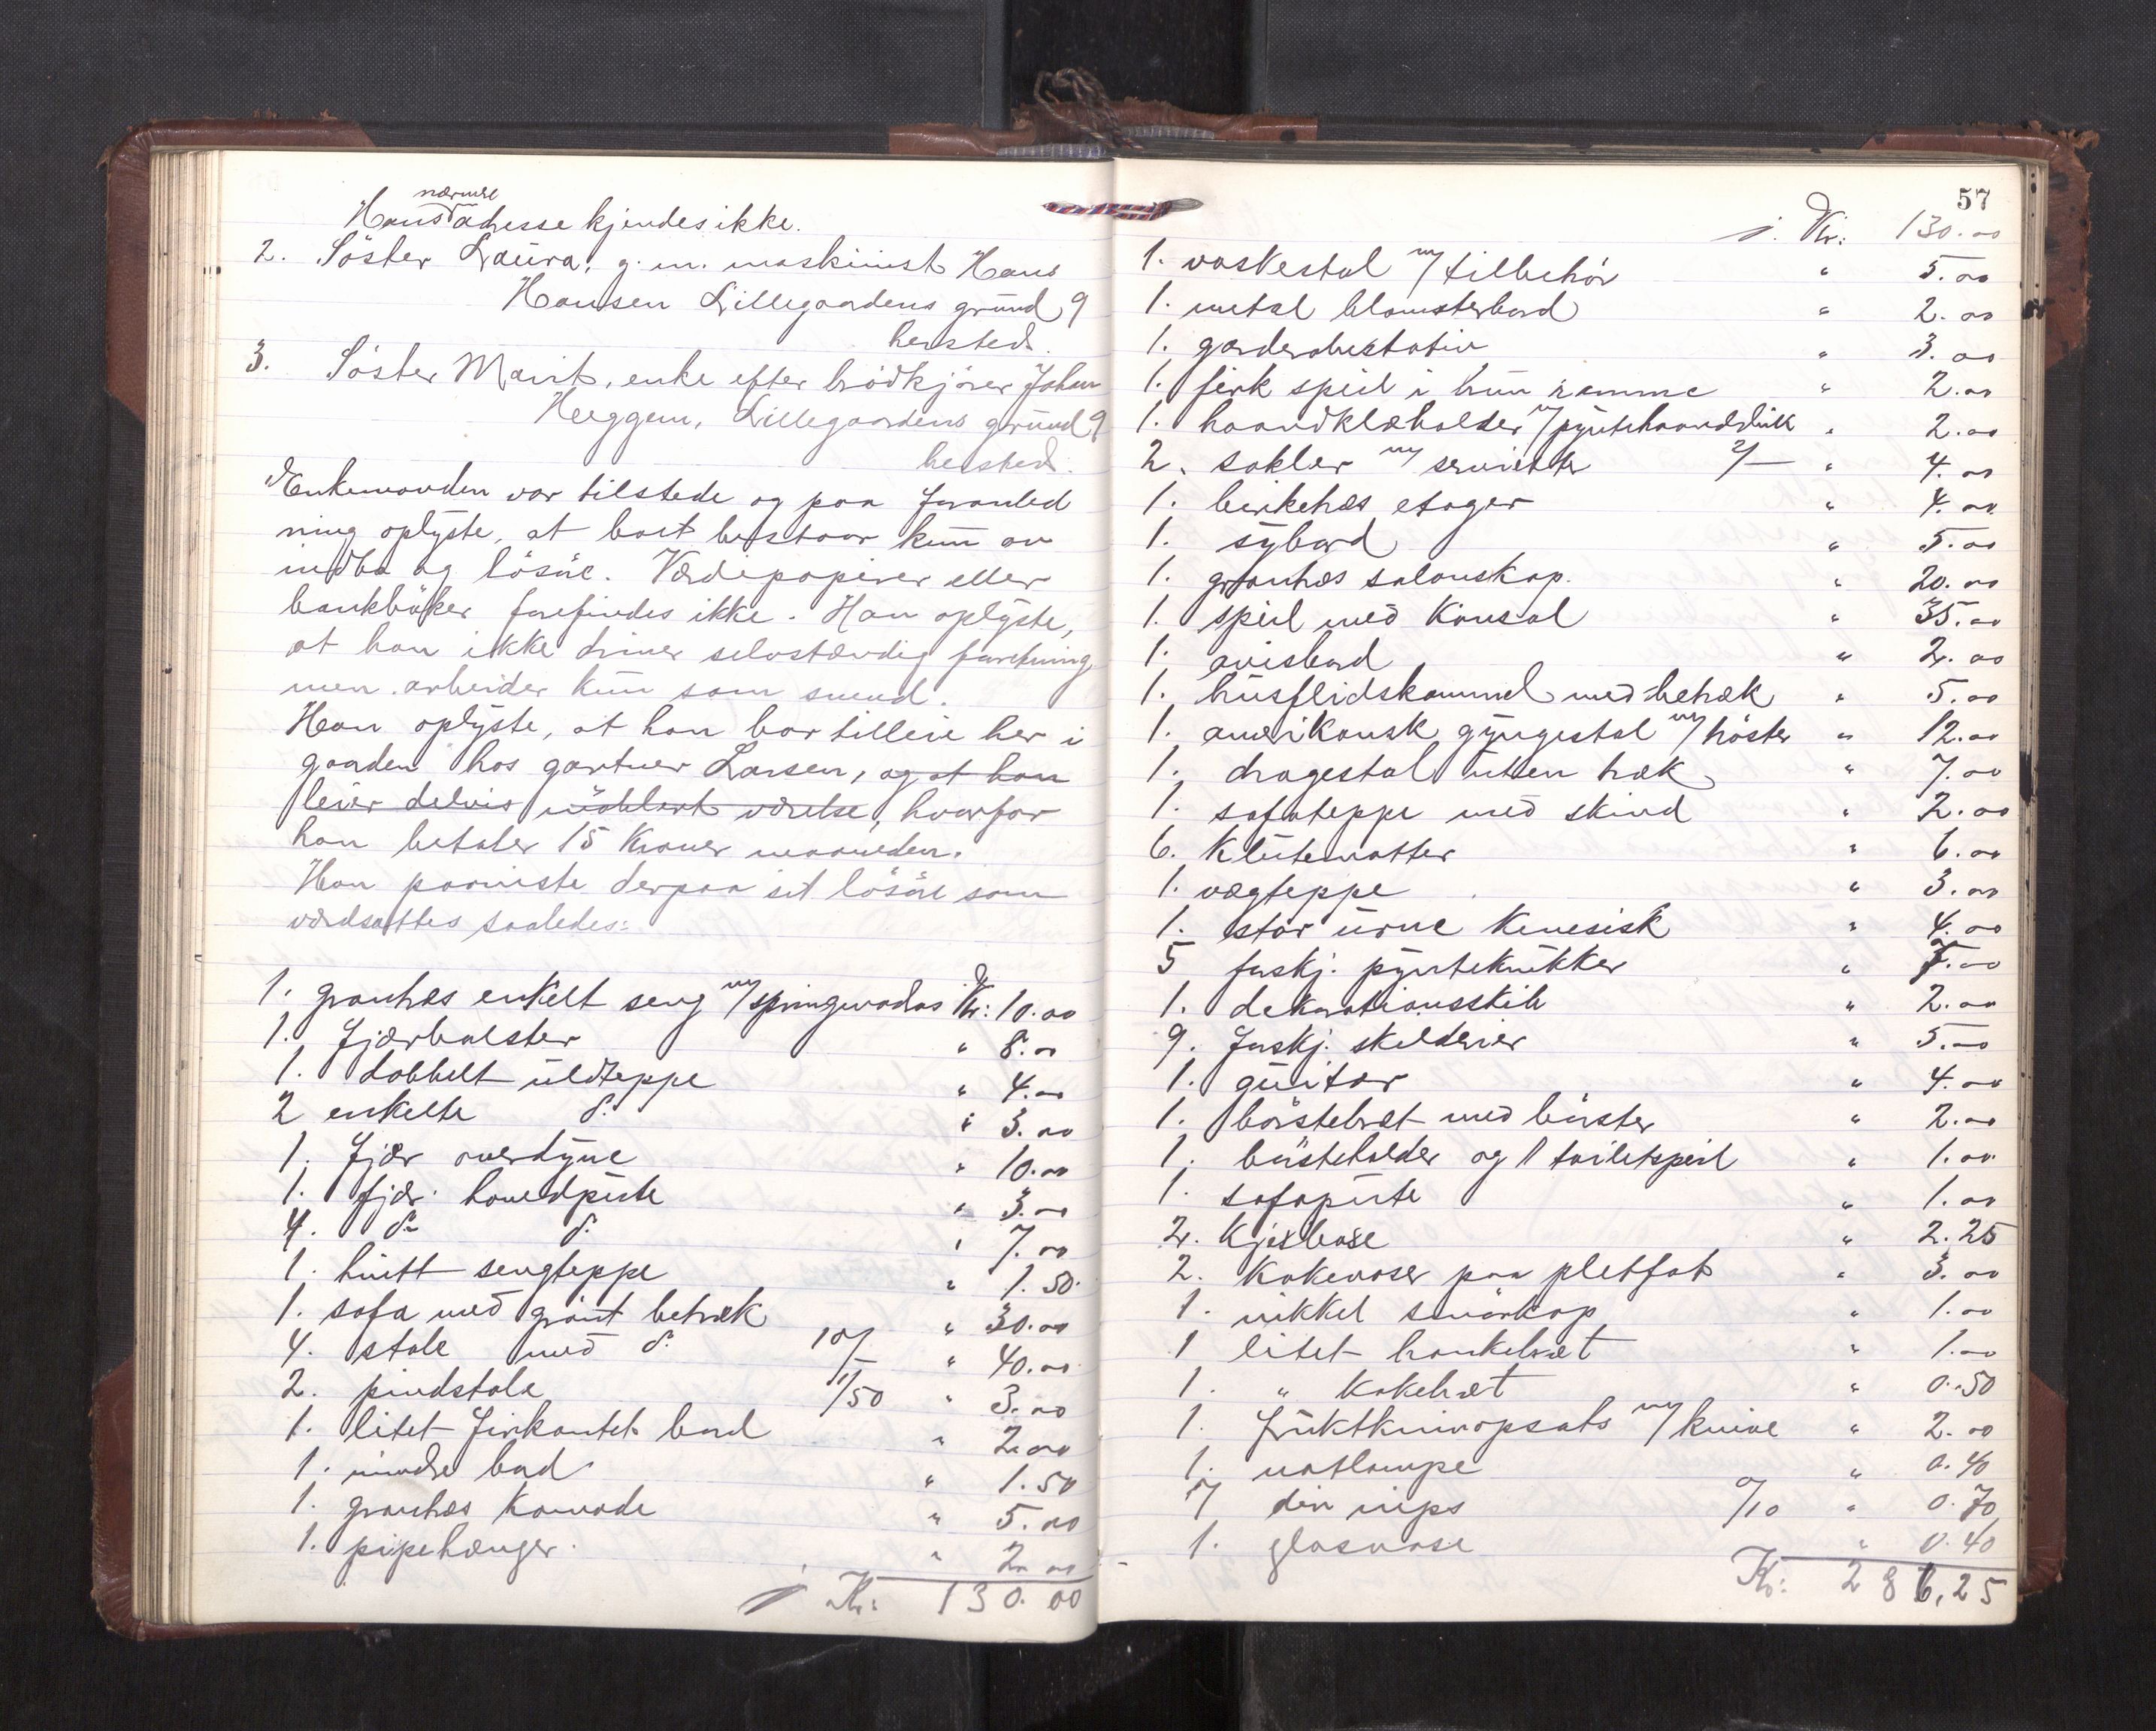 nærmere
Hans adresse kjendes ikke.
2. Söster Laura, g. m. maskinist Hans
Hansen Lillegaardens grund 9
hersteds.
3. Söster Marit, enke efter brödkjörer Johan
Heggem, Lillegaardens grund 9
hersteds.
Enkemanden var tilstede og paa foranled
ning oplyste, at boet bestaar kun av
indbo og lösöre. Værdipapirer eller
bankböker forefindes ikke. Han oplyste,
at han ikke driver selvstændig forretning
men arbeider kun som svend.
Han oplyste, at han bor tilleie her i
gaarden hos gartner Larsen, og at han
leier delvis möblert værelse, hvorfor
han betaler 15 Kroner maaneden.
Han paaviste derpaa sit lösöre som
værdsattes saaledes:
1. grantræs enkelt seng m/ springmadras Kr: 10.00
1. Fjærbolster " 8.00
1. dobbelt uldteppe " 4.00
2 enkelte d: " 3.00
1. Fjær overdyne " 10.00
1. fjær hovedpute " 3.00
4. d: d: " 7.00
1. hvitt sengteppe " 1.50
1. sofa med grönt betræk " 30.00
4. stole med d: 10/ " 40.00
2. pindstole 1/50 " 3.00
1. litet firkantet bord " 2.00
1. mindre bord " 1.50
1. grantræs Komode " 5.00
1. pipehænger " 2.00
Kr: 130.00
57
Kr: 130.00
1. vaskestol m/ tilbehör " 5.00
1. metal blomsterbord " 2.00
1. garderobestativ " 3.00
1. firk speil i brun ramme " 2.00
1. haandklæholder m/ pyntehaandduk " 2.00
2. sokler m/ servietter 2/— " 4.00
1. birketræs etager " 4.00
1. sybord " 5.00
1. grantræs salonskap. " 20.00
1. speil med Konsol " 35.00
1. avisbord " 2.00
1. husflidskrammel med betræk " 5.00
1. amerikansk gyngestol m/ " 12.00
1. dragestol uten træk " 7.00
1. sofateppe med skind " 2.00
6. Klutematter " 6.00
1. vægteppe " 3.00
1. stor urne Kinesisk " 4.00
5 forskj. pynteknikker " 7.00
1. dekorationsskib " 2.00
9. Forskj. skilderier " 5.00
1. guitar " 4.00
1. börstebræt med börster " 2.00
1. börsteholder og 1 toiletspeil " 1.00
1. sofapute " 1.00
2. " 2.25
2. Kakevaser paa pletfat " 3.00
1. nikkel smörkop " 1.00
1 litet hankebræt " 1.00
1. " Kakebræt " 0.50
1. Fruktknivopsats m/ knive " 2.00
1. natlampe " 0.40
7 div nips 0/10 " 0.70
1. glasvase " 0.40
Kr: 286,25